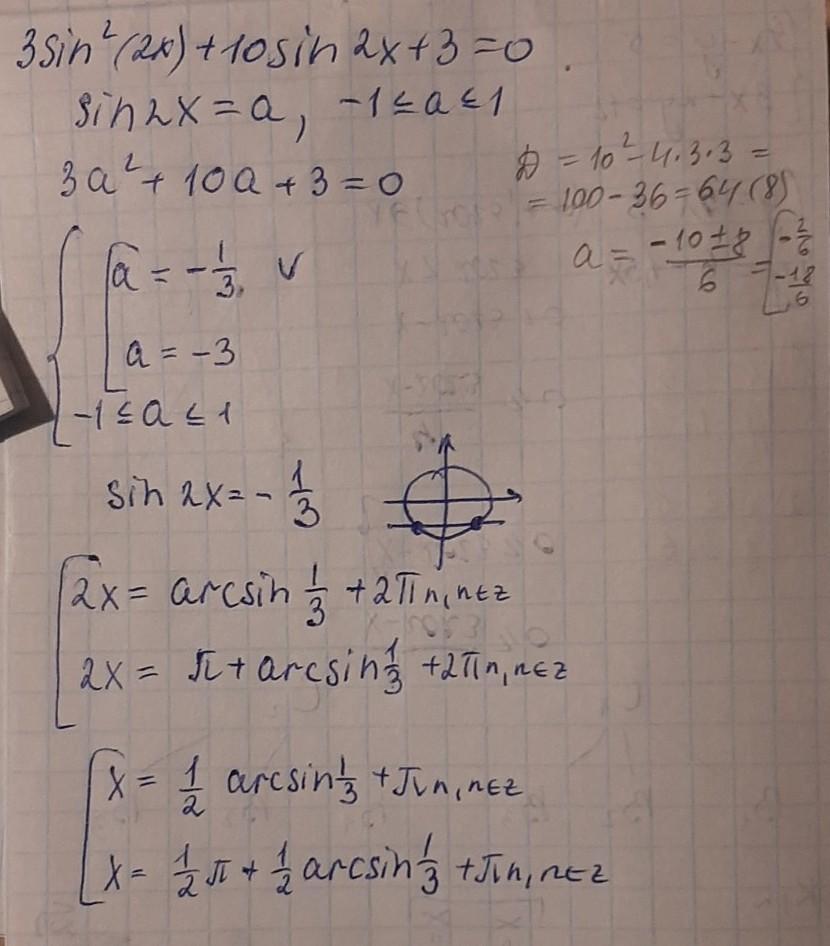 3sin²(2x)+10sin 2x+3=0
sin 2x = a, -1 ≤ a ≤ 1
3a²+10a+3=0
D = 10²-4·3·3 =
= 100-36=64 (8)
a = (-10±8)/6 = [-2/6
-18/6
a = -1/3, v
a = -3
-1 ≤ a ≤ 1
sin 2x = -1/3
2x = arcsin 1/3 + 2πn, n∈z
2x = π + arcsin 1/3 + 2πn, n∈z
x = 1/2 arcsin 1/3 + πn, n∈z
x = 1/2 π + 1/2 arcsin 1/3 + πn, n∈z